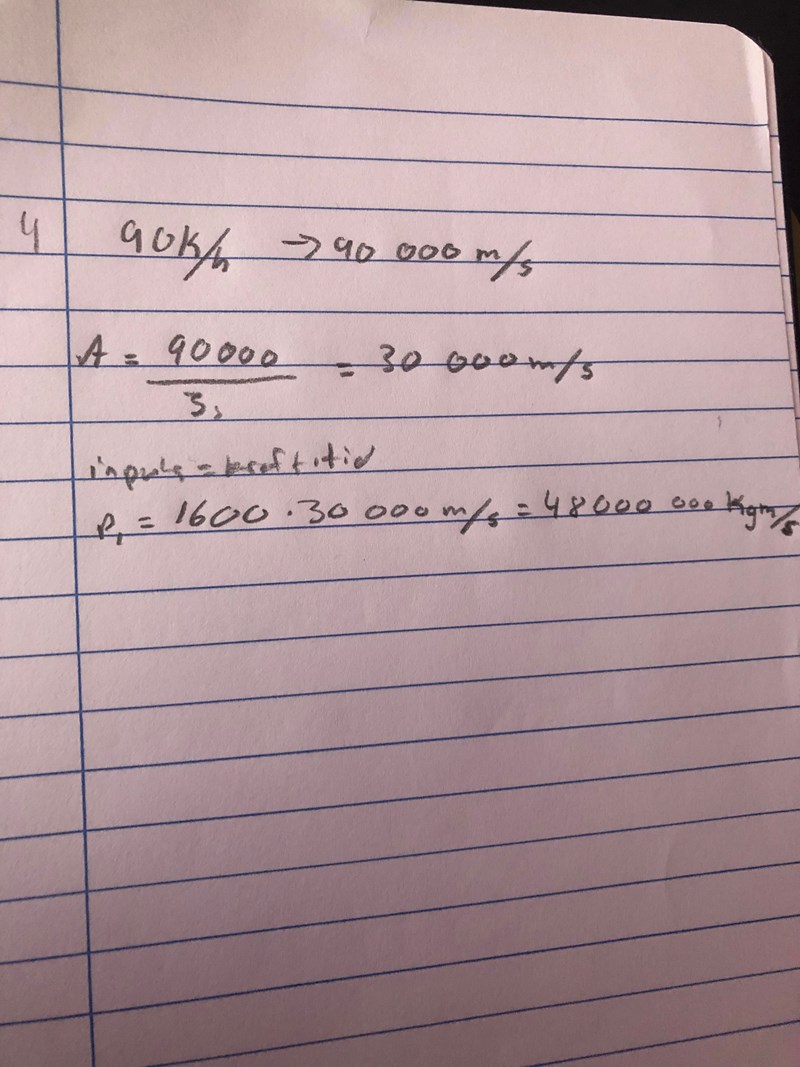 4 90K/h → 90 000 m/s
A = 90000 / 3s = 30 000 m/s
inpuls = kraft · tid
P₁ = 1600 · 30 000 m/s = 48000 000 Kgm/s